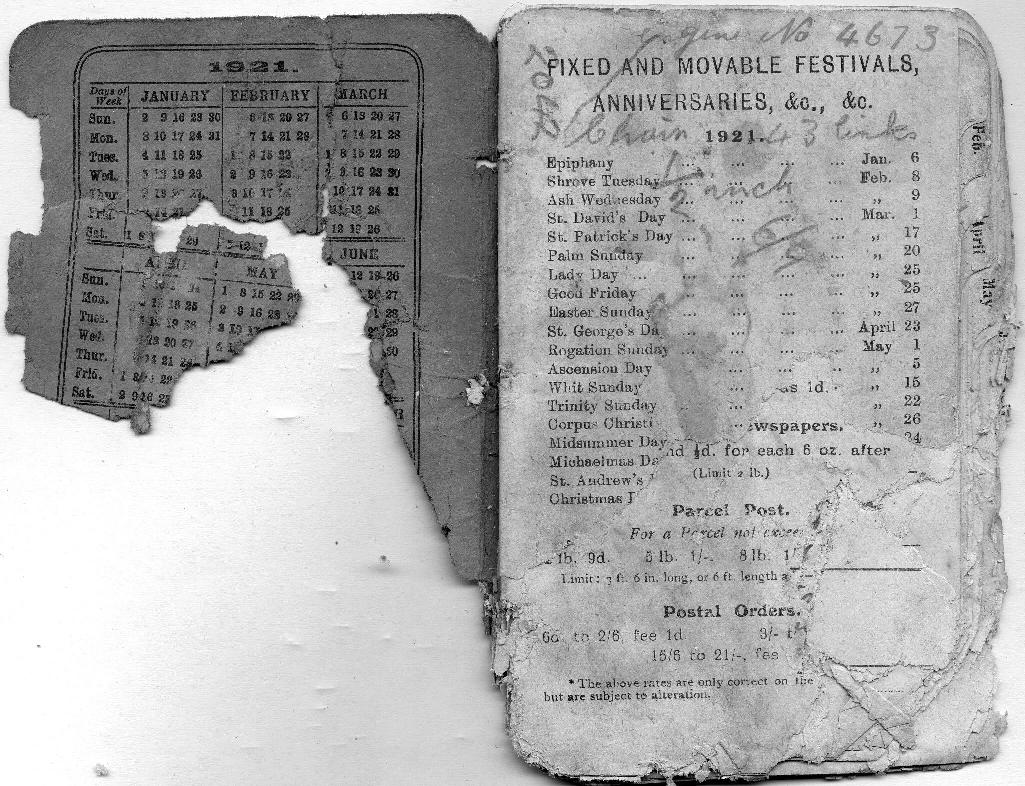 1921.
Days of Week JANUARY FEBRUARY MARCH
Sun. 2 9 16 23 30 20 27 6 13 20 27
Mon. 3 10 17 24 31 7 14 21 28 7 14 21 28
Tues. 4 11 18 25 1 8 15 22 1 8 15 22 29
Wed. 19 26 2 9 16 23 2 9 16 23 30
Thur 3 10 17 10 17 24 31
Frid. 11 18 25 18 25
Sat. 1 8 29 5 12 12 19 26
JUNE
MAY
Sun. 1 8 15 22 29 12 19 26
Mon. 18 25 2 9 16 23 27
Tues. 19 26 28
Wed. 13 20 27 29
Thur. 14 21 28 30
Frid. 1 29
Sat. 2 9 16
engine No 4673
2042
FIXED AND MOVABLE FESTIVALS,
ANNIVERSARIES, &c., &c.
1921.
Chain 43 links
1/2 inch
Epiphany ... ... ... Jan. 6
Shrove Tuesday ... ... Feb. 8
Ash Wednesday ... ... ... „ 9
St. David's Day ... ... Mar. 1
St. Patrick's Day ... ... ... „ 17
Palm Sunday ... ... ... „ 20
Lady Day ... ... ... ... „ 25
Good Friday ... ... ... „ 25
Easter Sunday ... ... ... „ 27
St. George's Da ... ... April 23
Rogation Sunday ... ... ... May 1
Ascension Day ... ... ... „ 5
Whit Sunday ... as 1d. „ 15
Trinity Sunday ... „ 22
Corpus Christi ewspapers. „ 26
Midsummer Day 24
nd ½d. for each 6 oz. after
Michaelmas Da
(Limit 2 lb.)
St. Andrew's
Christmas
Parcel Post.
For a Parcel not excee
lb. 9d. 5 lb. 1/-. 8 lb. 1/
Limit: 3 ft. 6 in. long, or 6 ft. length a
Postal Orders.
to 2/6, fee 1d 3/- t
15/6 to 21/-, fee
* The above rates are only correct on the
but are subject to alteration.
Feb.
April
May